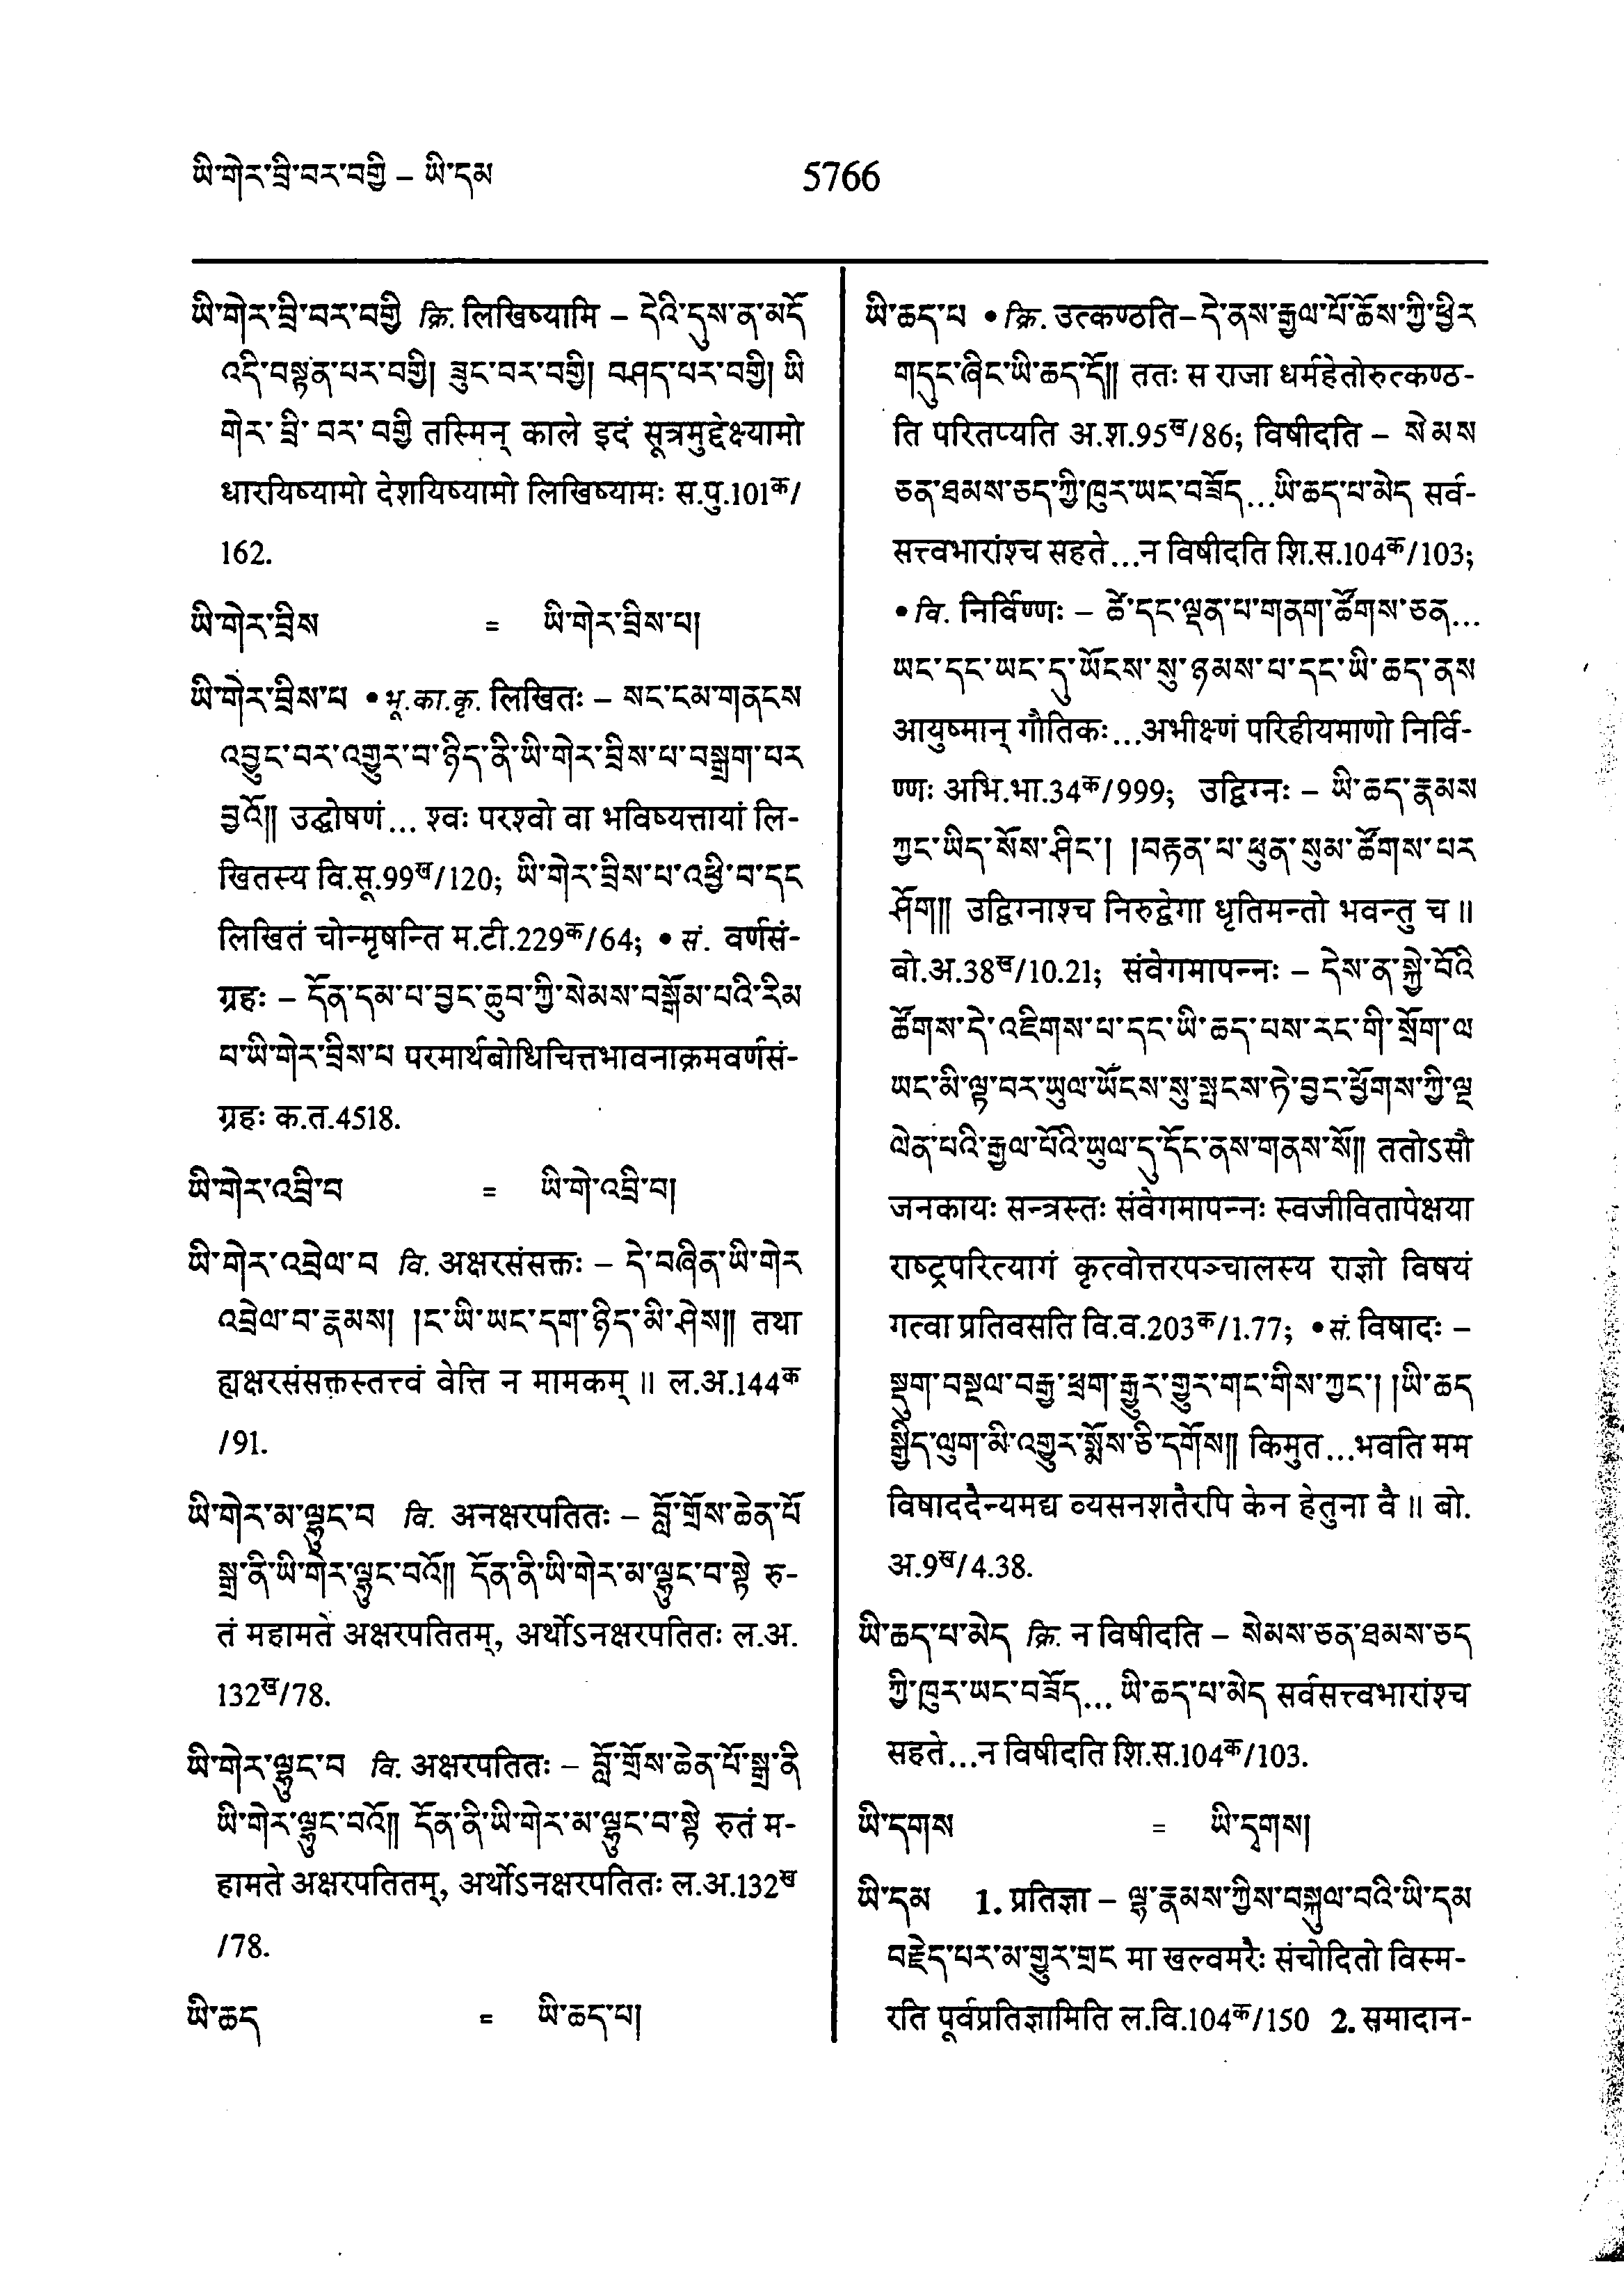 ཡི་གེར་བྲི་བར་བགྱི – ཡི་དམ
5766
ཡི་གེར་བྲི་བར་བགྱི क्रि. लिखिष्यामि – དེའི་དུས་ན་མདོ
འདི་བསྟན་པར་བགྱི། ཟུང་བར་བགྱི། བཤད་པར་བགྱི། ཡི
གེར་ བྲི་ བར་ བགྱི तस्मिन् काले इदं सूत्रमुद्देक्ष्यामो
धारयिष्यामो देशयिष्यामो लिखिष्यामः स.पु.101क/
162.
ཡི་གེར་བྲིས = ཡི་གེར་བྲིས་པ།
ཡི་གེར་བྲིས་པ • भू.का.कृ. लिखितः – སང་ངམ་གནངས
འབྱུང་བར་འགྱུར་བ་ཉིད་ནི་ཡི་གེར་བྲིས་པ་བསྒྲག་པར
བྱའོ༎ उद्घोषणं... श्वः परश्वो वा भविष्यत्तायां लि-
खितस्य वि.सू.99ख/120; ཡི་གེར་བྲིས་པ་འཕྱི་བ་དང
लिखितं चोन्मृषन्ति म.टी.229क/64; • सं. वर्णसं-
ग्रहः – དོན་དམ་པ་བྱང་ཆུབ་ཀྱི་སེམས་བསྒོམ་པའི་རིམ
པ་ཡི་གེར་བྲིས་པ परमार्थबोधिचित्तभावनाक्रमवर्णसं-
ग्रहः क.त.4518.
ཡི་གེར་འབྲི་བ = ཡི་གེ་འབྲི་བ།
ཡི་གེར་འབྲེལ་བ वि. अक्षरसंसक्तः – དེ་བཞིན་ཡི་གེར
འབྲེལ་བ་རྣམས། །ང་ཡི་ཡང་དག་ཉིད་མི་ཤེས༎ तथा
ह्यक्षरसंसक्तस्तत्त्वं वेत्ति न मामकम् ॥ ल.अ.144क
/91.
ཡི་གེར་མ་ལྟུང་བ वि. अनक्षरपतितः – བློ་གྲོས་ཆེན་པོ
སྒྲ་ནི་ཡི་གེར་ལྟུང་བའོ༎ དོན་ནི་ཡི་གེར་མ་ལྟུང་བ་སྟེ रु-
तं महामते अक्षरपतितम्, अर्थोऽनक्षरपतितः ल.अ.
132ख/78.
ཡི་གེར་ལྟུང་བ वि. अक्षरपतितः – བློ་གྲོས་ཆེན་པོ་སྒྲ་ནི
ཡི་གེར་ལྟུང་བའོ༎ དོན་ནི་ཡི་གེར་མ་ལྟུང་བ་སྟེ रुतं म-
हामते अक्षरपतितम्, अर्थोऽनक्षरपतितः ल.अ.132ख
/78.
ཡི་ཆད = ཡི་ཆད་པ།
ཡི་ཆད་པ • क्रि. उत्कण्ठति–དེ་ནས་རྒྱལ་པོ་ཆོས་ཀྱི་ཕྱིར
གདུང་ཞིང་ཡི་ཆད་དོ༎ ततः स राजा धर्महेतोरुत्कण्ठ-
ति परितप्यति अ.श.95ख/86; विषीदति – སེམས
ཅན་ཐམས་ཅད་ཀྱི་ཁུར་ཡང་བཟོད...ཡི་ཆད་པ་མེད सर्व-
सत्त्वभारांश्च सहते...न विषीदति शि.स.104क/103;
• वि. निर्विण्णः – ཚེ་དང་ལྡན་པ་གནག་ཚོགས་ཅན...
ཡང་དང་ཡང་དུ་ཡོངས་སུ་ཉམས་པ་དང་ཡི་ཆད་ནས
आयुष्मान् गौतिकः...अभीक्ष्णं परिहीयमाणो निर्वि-
ण्णः अभि.भा.34क/999; उद्विग्नः – ཡི་ཆད་རྣམས
ཀྱང་ཡིད་སོས་ཤིང་། །བརྟན་པ་ཕུན་སུམ་ཚོགས་པར
ཤོག༎ उद्विग्नाश्च निरुद्वेगा धृतिमन्तो भवन्तु च ॥
बो.अ.38ख/10.21; संवेगमापन्नः – དེས་ན་སྐྱེ་བོའི
ཚོགས་དེ་འཇིགས་པ་དང་ཡི་ཆད་པས་རང་གི་སྲོག་ལ
ཡང་མི་ལྟ་བར་ཡུལ་ཡོངས་སུ་སྤངས་ཏེ་བྱང་ཕྱོགས་ཀྱི་ལྔ
ལེན་པའི་རྒྱལ་པོའི་ཡུལ་དུ་དོང་ནས་གནས་སོ༎ ततोऽसौ
जनकायः सन्त्रस्तः संवेगमापन्नः स्वजीवितापेक्षया
राष्ट्रपरित्यागं कृत्वोत्तरपञ्चालस्य राज्ञो विषयं
गत्वा प्रतिवसति वि.व.203क/1.77; • सं. विषादः –
སྡུག་བསྔལ་བརྒྱ་ཕྲག་རྒྱུར་གྱུར་གང་གིས་ཀྱང་། །ཡི་ཆད
སྒྱིད་ལུག་མི་འགྱུར་སྨོས་ཅི་དགོས༎ किमुत...भवति मम
विषाददैन्यमद्य व्यसनशतैरपि केन हेतुना वै ॥ बो.
अ.9ख/4.38.
ཡི་ཆད་པ་མེད क्रि. न विषीदति – སེམས་ཅན་ཐམས་ཅད
ཀྱི་ཁུར་ཡང་བཟོད... ཡི་ཆད་པ་མེད सर्वसत्त्वभारांश्च
सहते...न विषीदति शि.स.104क/103.
ཡི་དགས = ཡི་དྭགས།
ཡི་དམ 1. प्रतिज्ञा – ལྷ་རྣམས་ཀྱིས་བསྐུལ་བའི་ཡི་དམ
བརྗེད་པར་མ་གྱུར་གྲང मा खल्वमरैः संचोदितो विस्म-
रति पूर्वप्रतिज्ञामिति ल.वि.104क/150 2. समादान-